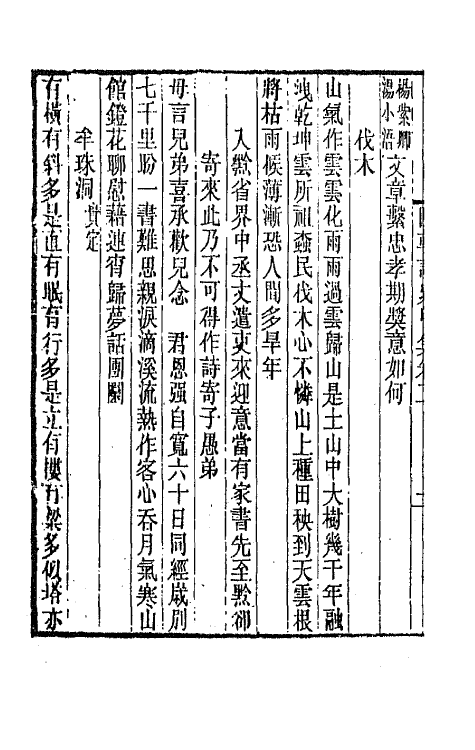 楊紫卿
湯小浯文章繫忠孝期獎意如何
伐木
山氣作雲雲化雨雨過雲歸山是土山中大樹幾千年融
洩乾坤雲所祖蠢民伐木心不憐山上種田秧到天雲根
將枯雨候薄漸恐人間多旱年
入黔省界中丞丈遣吏來迎意當有家書先至黔卻
寄來此乃不可得作詩寄子愚弟
毋言兒弟喜承歡兒念 君恩强自寬六十日同經歲別
七千里盼一書難思親淚滴溪流熱作客心吞月氣寒山
館鐙花聊慰藉連宵歸夢話團圞
牟珠洞貴定
有橫有斜多是直有眠有行多是立有樓有梁多似塔亦